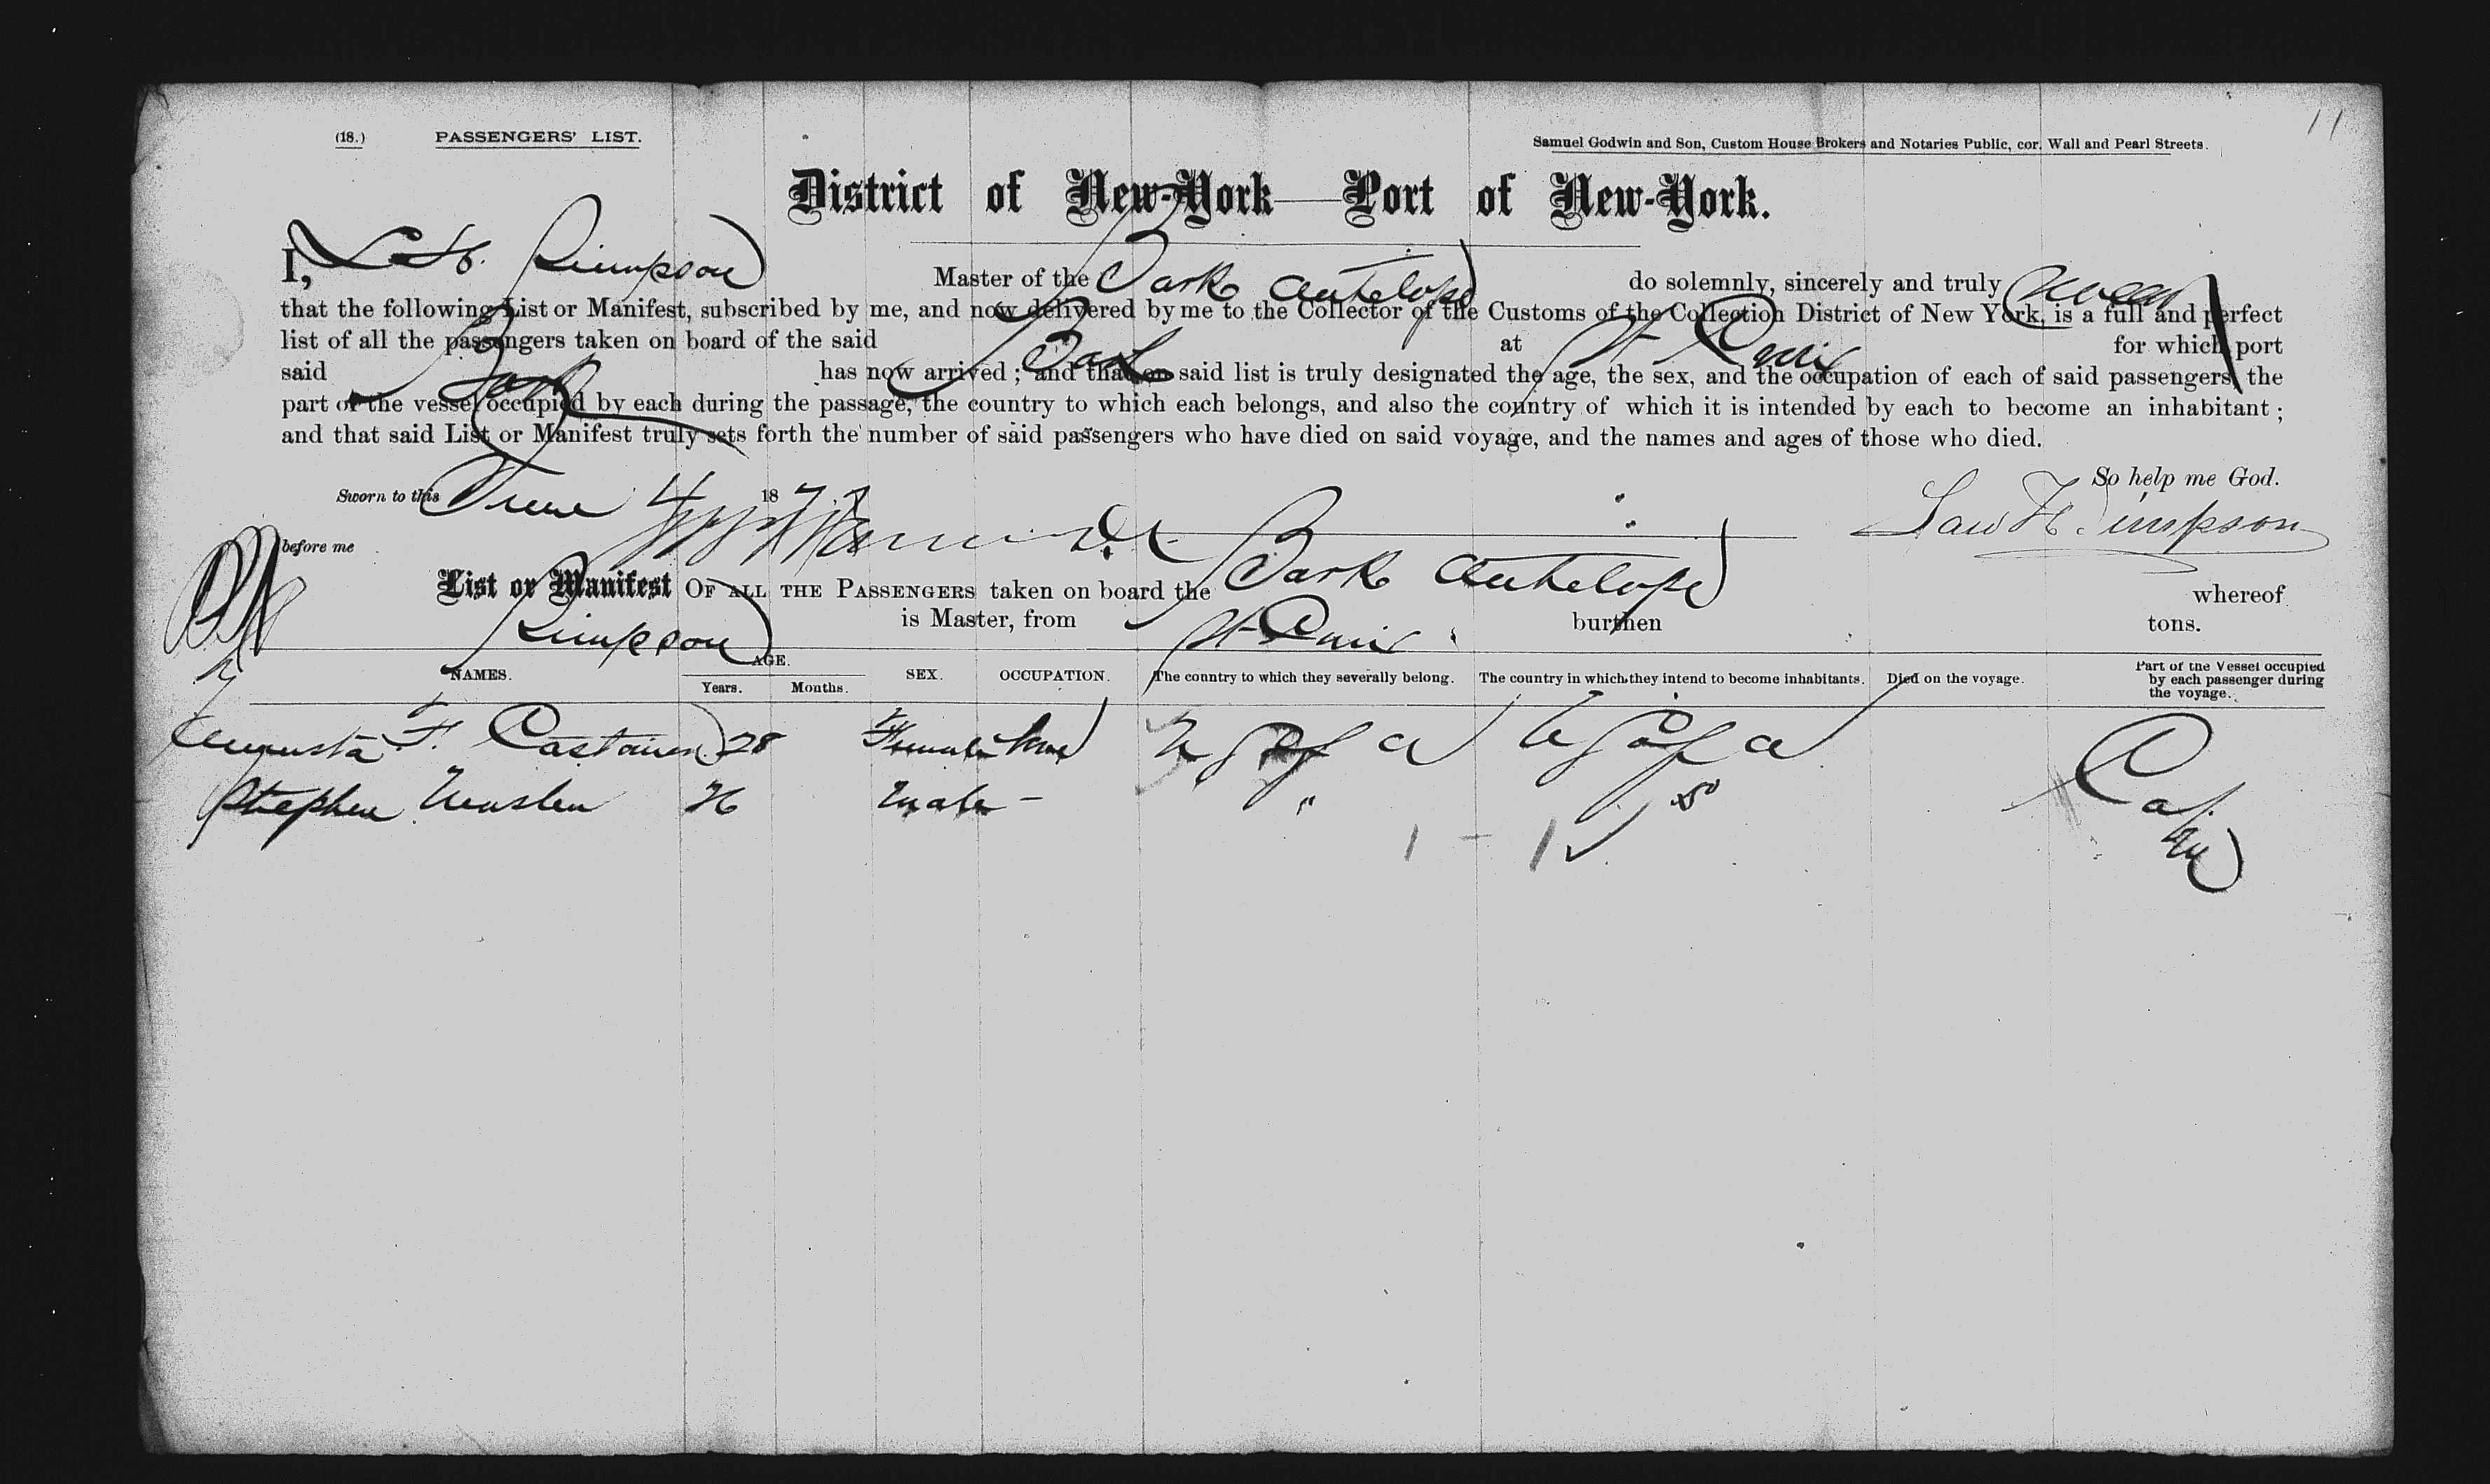 11
(18.) PASSENGERS' LIST. Samuel Godwin and Son, Custom House Brokers and Notaries Public, cor. Wall and Pearl Streets.
District of New-York—Port of New-York.
I, L H. Simpson Master of the Bark Antelope do solemnly, sincerely and truly swear
that the following List or Manifest, subscribed by me, and now delivered by me to the Collector of the Customs of the Collection District of New York, is a full and perfect
list of all the passengers taken on board of the said Bark at St Croix for which port
said Bark has now arrived; and that on said list is truly designated the age, the sex, and the occupation of each of said passengers, the
part of the vessel occupied by each during the passage, the country to which each belongs, and also the country of which it is intended by each to become an inhabitant;
and that said List or Manifest truly sets forth the number of said passengers who have died on said voyage, and the names and ages of those who died.
So help me God.
Sworn to this June 4 187
before me
Law H Simpson
List or Manifest OF ALL THE PASSENGERS taken on board the Bark Antelope whereof
Simpson is Master, from St Croix burthen tons.
NAMES. AGE. Years. Months. SEX. OCCUPATION. The country to which they severally belong. The country in which they intend to become inhabitants. Died on the voyage. Part of the Vessel occupied by each passenger during the voyage.
Augusta F. 28 Female U S of a U S of a
Stephen 26 Male - " Cabin
1 - 1